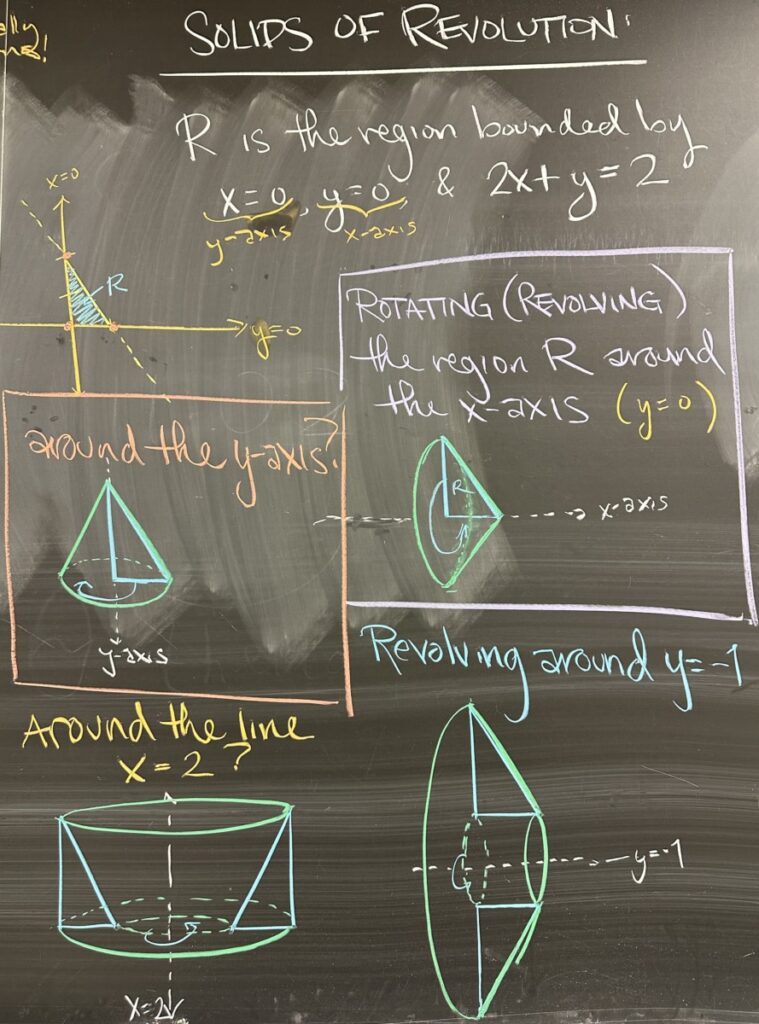 SOLIDS OF REVOLUTION:
R is the region bounded by
x=0, y=0 & 2x+y=2
y-axis x-axis
x=0
R
y=0
ROTATING (REVOLVING)
the region R around
the x-axis (y=0)
R
x-axis
around the y-axis?
y-axis
Revolving around y=-1
y=-1
Around the line
x=2?
x=2